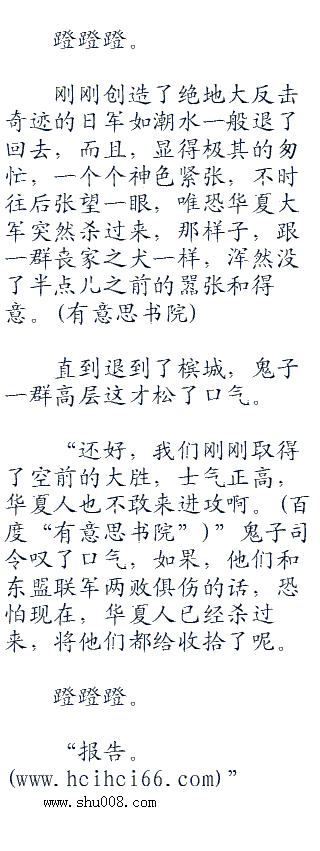 蹬蹬蹬。
刚刚创造了绝地大反击
奇迹的日军如潮水一般退了
回去，而且，显得极其的匆
忙，一个个神色紧张，不时
往后张望一眼，唯恐华夏大
军突然杀过来，那样子，跟
一群丧家之犬一样，浑然没
了半点儿之前的嚣张和得
意。(有意思书院)
直到退到了槟城，鬼子
一群高层这才松了口气。
“还好，我们刚刚取得
了空前的大胜，士气正高，
华夏人也不敢来进攻啊。(百
度“有意思书院”)”鬼子司
令叹了口气，如果，他们和
东盟联军两败俱伤的话，恐
怕现在，华夏人已经杀过
来，将他们都给收拾了呢。
蹬蹬蹬。
“报告。
(www.hcihci66.com)”
www.shu008.com